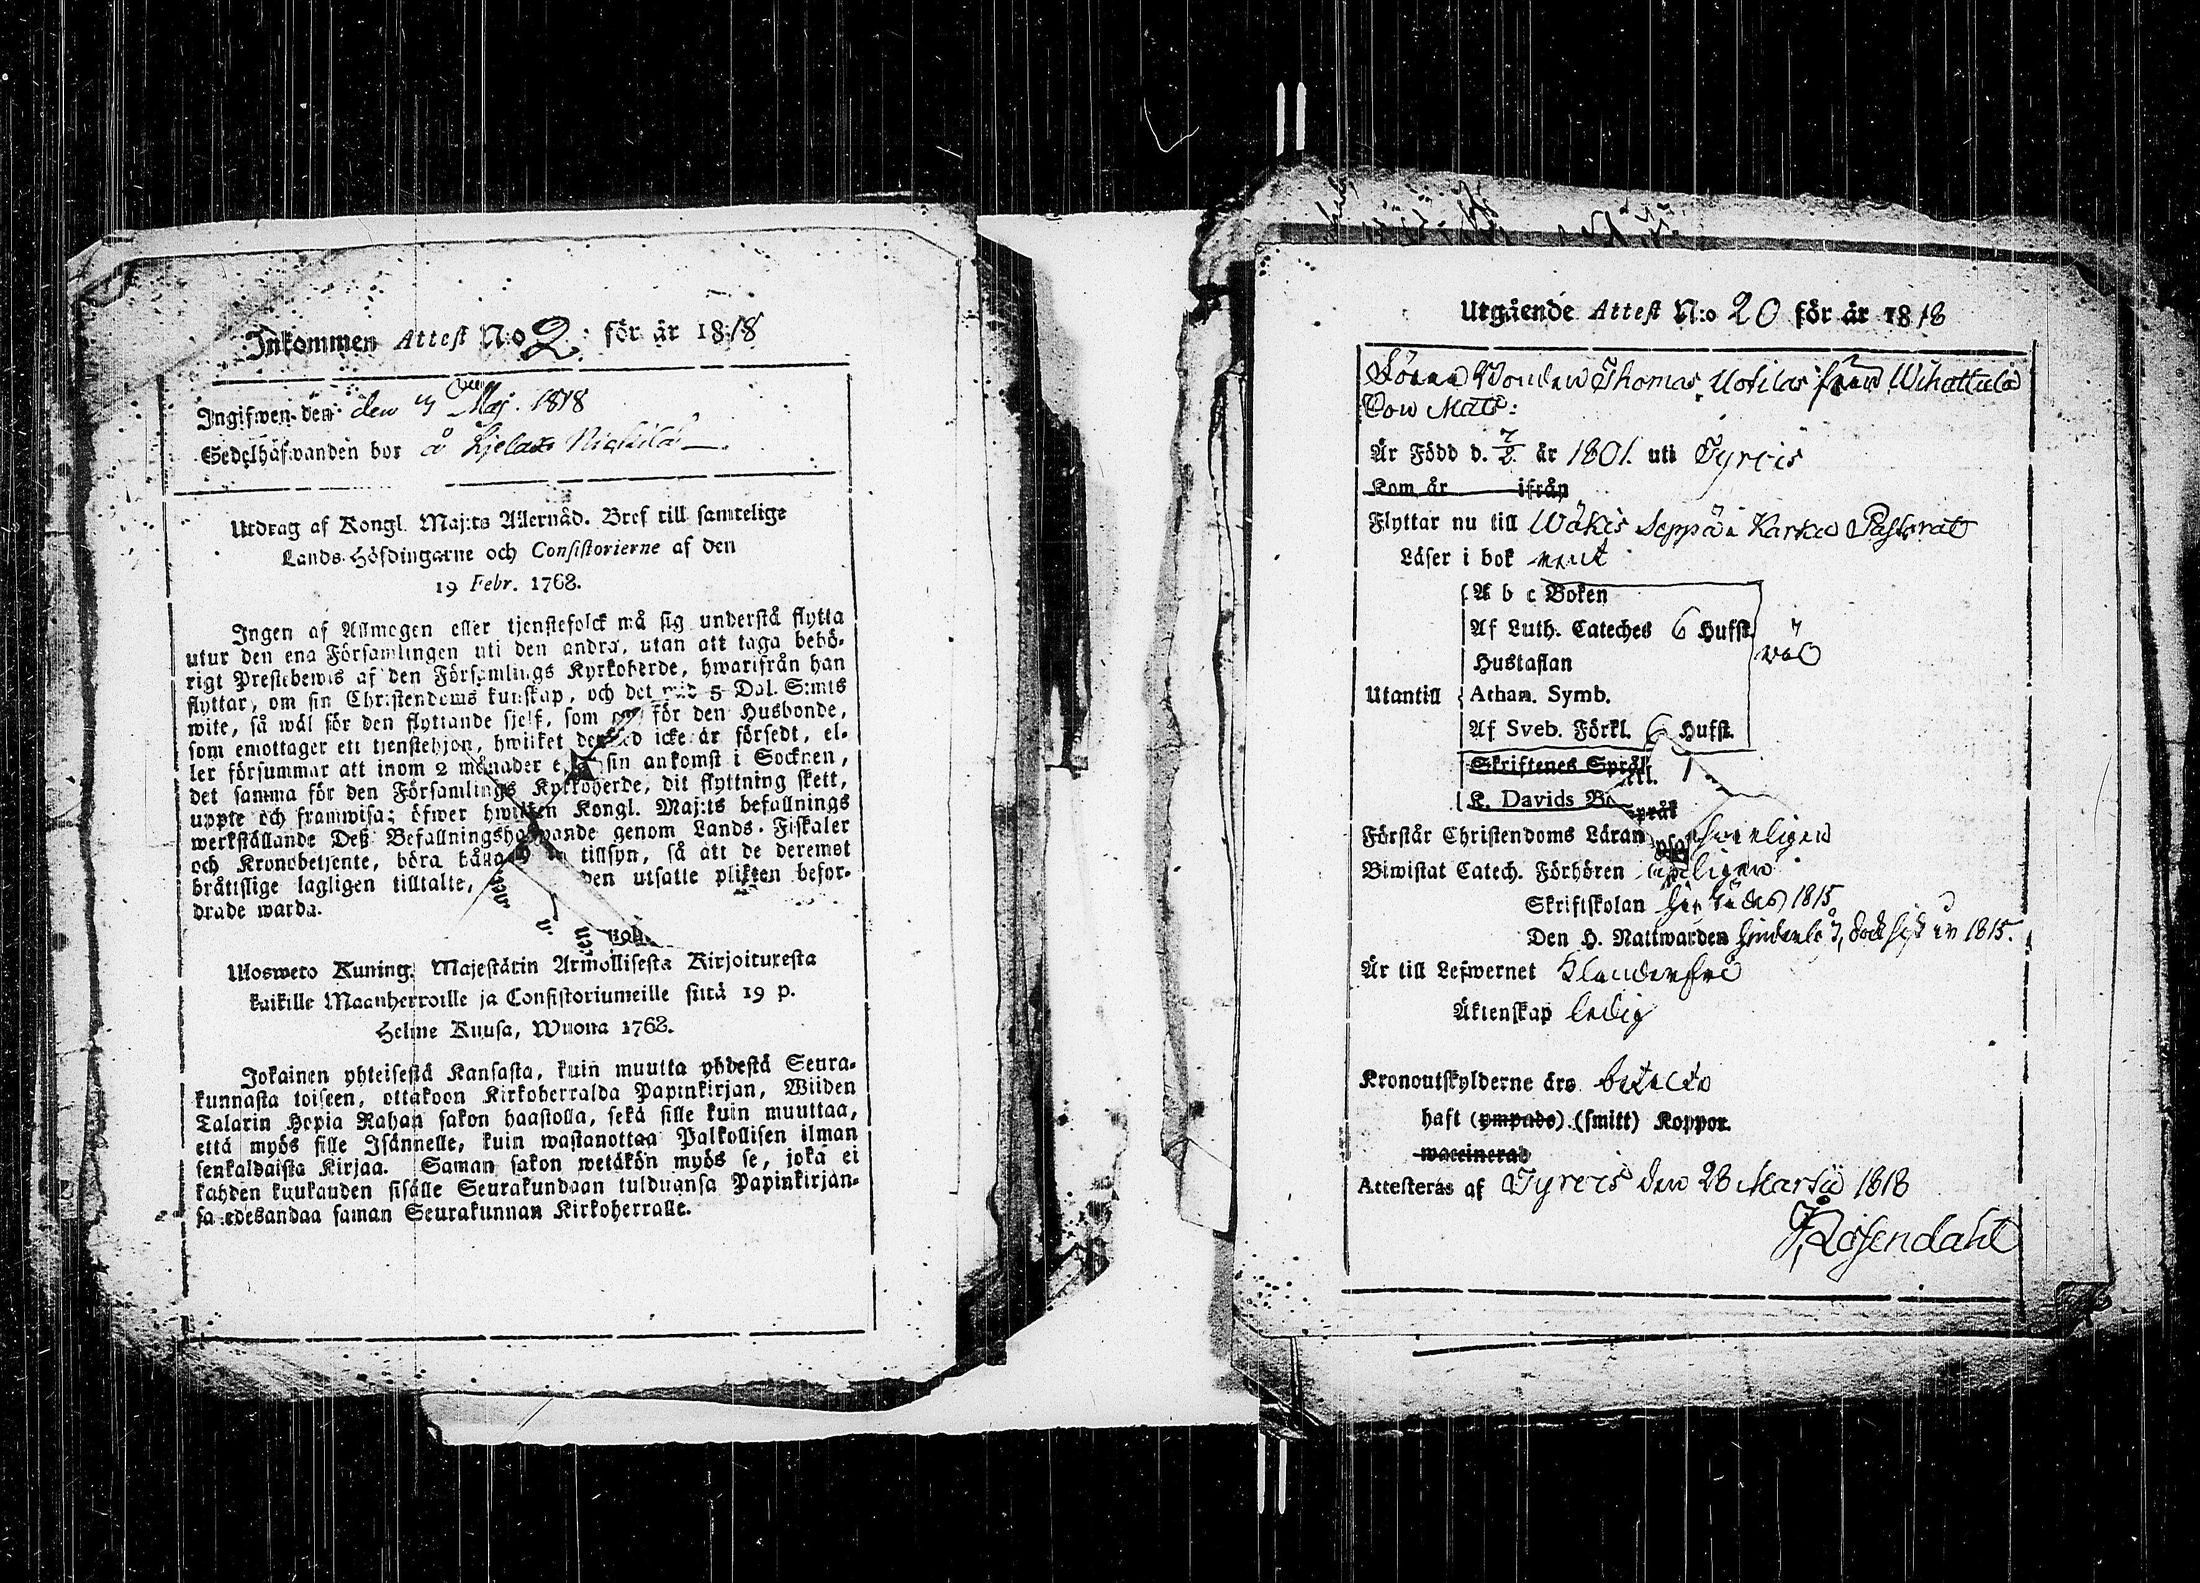 Inkommen Attest N:o 2. för år 1818
Ingifwen den den Maj. 1818
Sedelhafwanden bor å
Utdrag af Kongl. Maj:ts Allernåd. Bref till samtelige
Lands-Höfdingarne och Consistorierne af den
19 Febr. 1768.
Ingen af Allmogen eller tjenstefolck må sig understå flytta
utur den ena Församlingen uti den andra, utan att taga behö-
rigt Prestebewis af den Församlings Kyrkoherde, hwarifrån han
flyttar, om sin Christendoms kunskap, och det wid 5 Dal. S:mts
wite, så wäl för den flyttande sjelf, som för den Husbonde,
som emottager ett tjenstehjon, hwilket icke är försedt, el-
ler försummar att inom 2 månader sin ankomst i Socknen,
det samma för den Församlings Kyrkoherde, dit flyttning skett,
uppte och framwisa; öfwer hwilken Kongl. Maj:ts befallnings
werkställande Deß Befallningshafwande genom Lands-Fiskaler
och Kronobetjente, böra tillsyn, så att de deremot
bråttslige lagligen tilltalte, den utsatte plikten befor-
drade warda.
Ulosweto Kuning. Majestätin Armollisesta Kirjoituxesta
kaikille Maanherroille ja Consistoriumeille siitä 19 p.
Helme Kuusa, Wuonna 1768.
Jokainen yhteisestä Kansasta, kuin muutta yhdestä Seura-
kunnasta toiseen, ottakoon Kirkoherralda Papinkirjan, Wiiden
Talarin Hopia Rahan sakon haastolla, sekä sille kuin muuttaa,
että myös sille Isännelle, kuin wastanottaa Palkollisen ilman
senkaldaista Kirjaa. Saman sakon wetäkön myös se, joka ei
kahden kuukauden sisälle Seurakundaan tulduansa Papinkirjan-
sa edesandaa saman Seurakunnan Kirkoherralle.
Utgående Attest N:o 20 för år 1818
Sonen Thomas från Wihattula
Är Född d. 7/2 år 1801. uti Tyrvis
Kom år ifrån
Flyttar nu till Seppä i Karku Pastorat
Läser i bok rent
A b c Boken
Af Luth. Cateches 6 Hufst.
Hustaflan
Utantill Athan. Symb.
Af Sveb. Förkl. 6 Hufst.
Skriftenes Språk
K. Davids
Förstår Christendoms Läran
Biwistat Catech. Förhören
Skriftskolan 1815
Den H. Nattwarden 1815.
Är till Lefwernet Klanderfri
Äktenskap ledig
Kronoutskylderne äro betalte
haft (ympade) (smitt) Koppor.
waccinerad
Attesteras af Tyrvis den 28 Martii 1818
Rosendahl